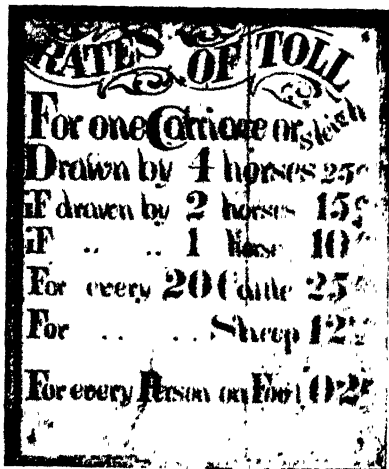 RATES OF TOLL
For one Carriage or sleigh
Drawn by 4 horses 25¢
iF drawn by 2 horses 15¢
iF .. .. 1 Horse 10¢
For every 20 Cattle 25¢
For .. .. Sheep 12½
For every Person on Foot 02¢